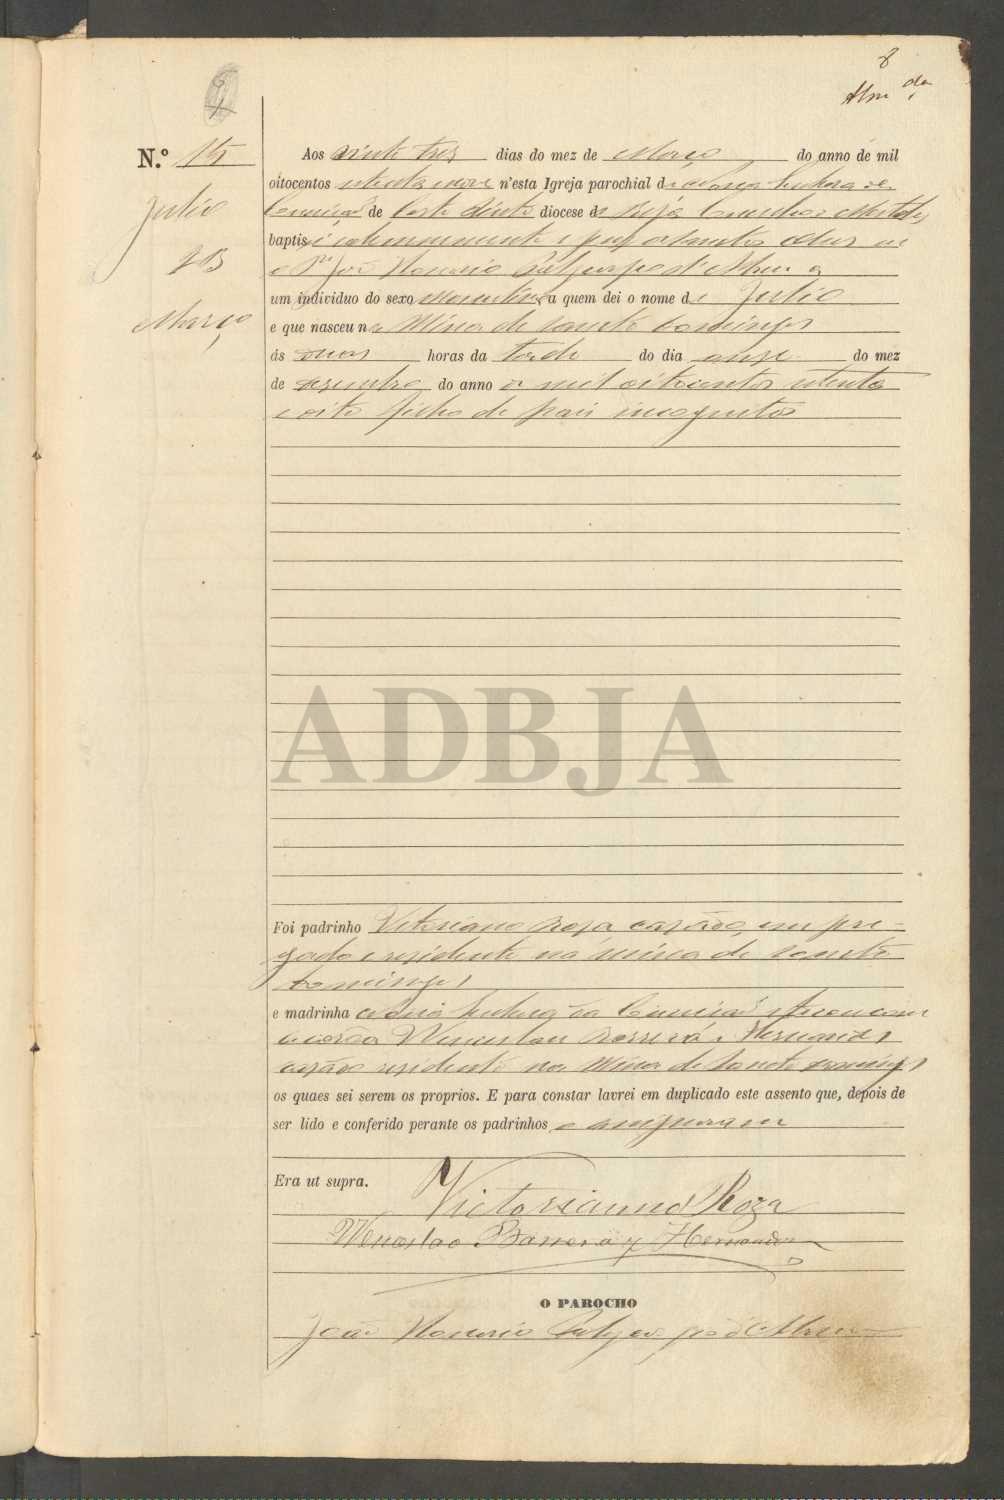 8
N.º 15
Julio
23
Março
Aos vinte tres dias do mez de Março do anno de mil
oitocentos oitenta nove n'esta Igreja parochial de Nossa Senhora da
Conceição de Corte do Pinto diocese de Beja Concelho de Mertola
baptisei solemnemente e puz os Santos Oleos
um individuo do sexo Masculino, a quem dei o nome de Julio
e que nasceu na Mina de Sancto Domingos
ás duas horas da tarde do dia onze do mez
de dezembro do anno de mil oitocentos oitenta
e oito filho de pais incognitos
ADBJA
Foi padrinho Vitoriano Roza cazado, empre-
gado e residente na mina de Sancto
Domingos
e madrinha Nossa Senhora da Conceição e tocou com
a coroa Wenceslau Barrera y Hernandez
cazado residente na Mina de Sancto Domingos
os quaes sei serem os proprios. E para constar lavrei em duplicado este assento que, depois de
ser lido e conferido perante os padrinhos o assignaram
Era ut supra.
Victorianno Roza
Wenceslao Barrera y Hernandez
O PAROCHO
João Nazario